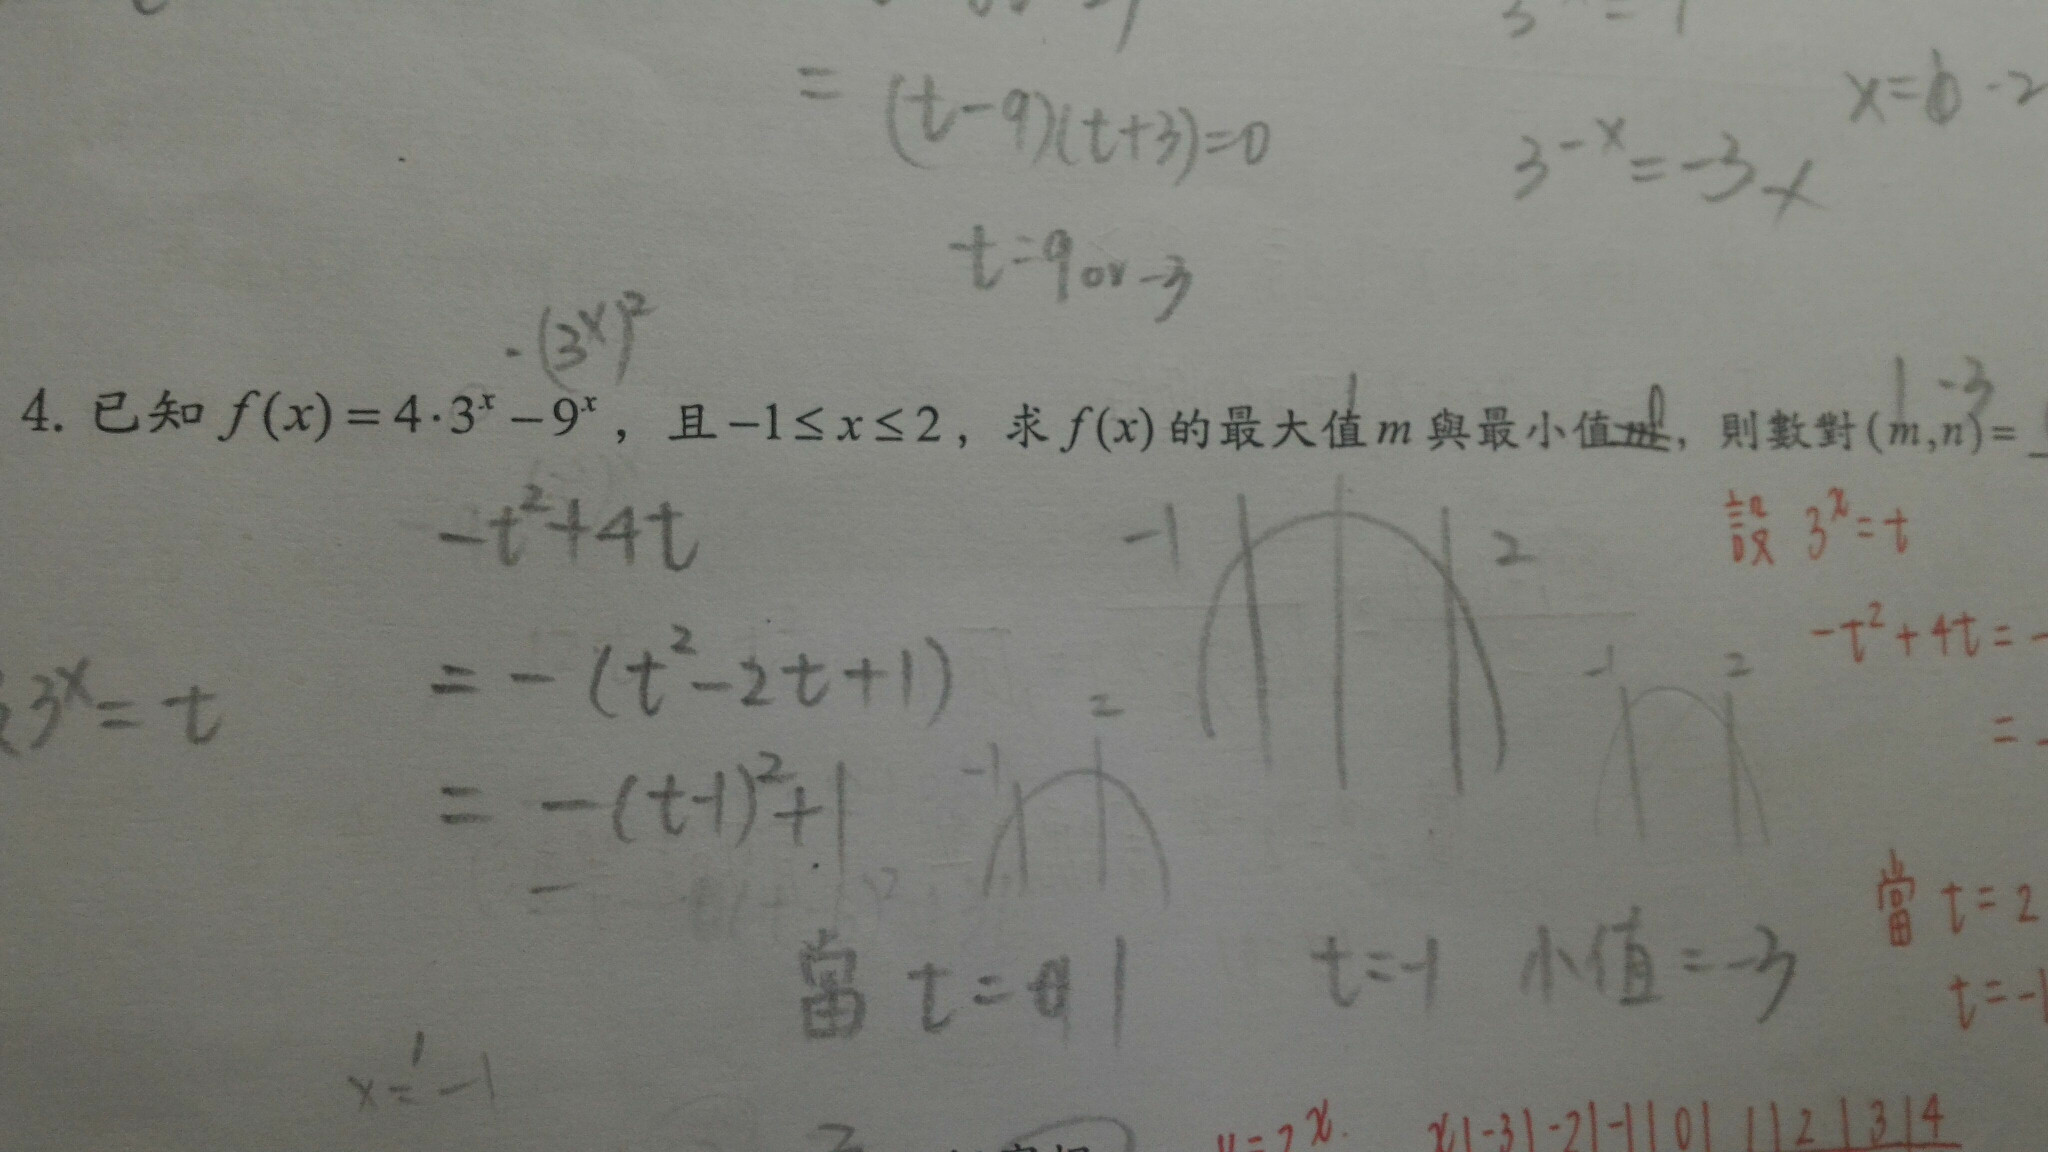 = (t-9)(t+3)=0
x=0 -2
3^-x = -3 x
t=9 or -3
-(3^x)^2
1 -3
4. 已知 f(x)=4·3^x-9^x，且-1≤x≤2，求f(x)的最大值m與最小值，則數對(m,n)=
-t^2+4t
-1 2
設 3^x=t
-t^2+4t=-
3^x=t
=-(t^2-2t+1)
-1 2
=
=-(t-1)^2+1
-1
當 t= 1
t=-1 小值=-3
當 t=2
t=-1
x=-1
x|-3|-2|-1|0|1|2|3|4